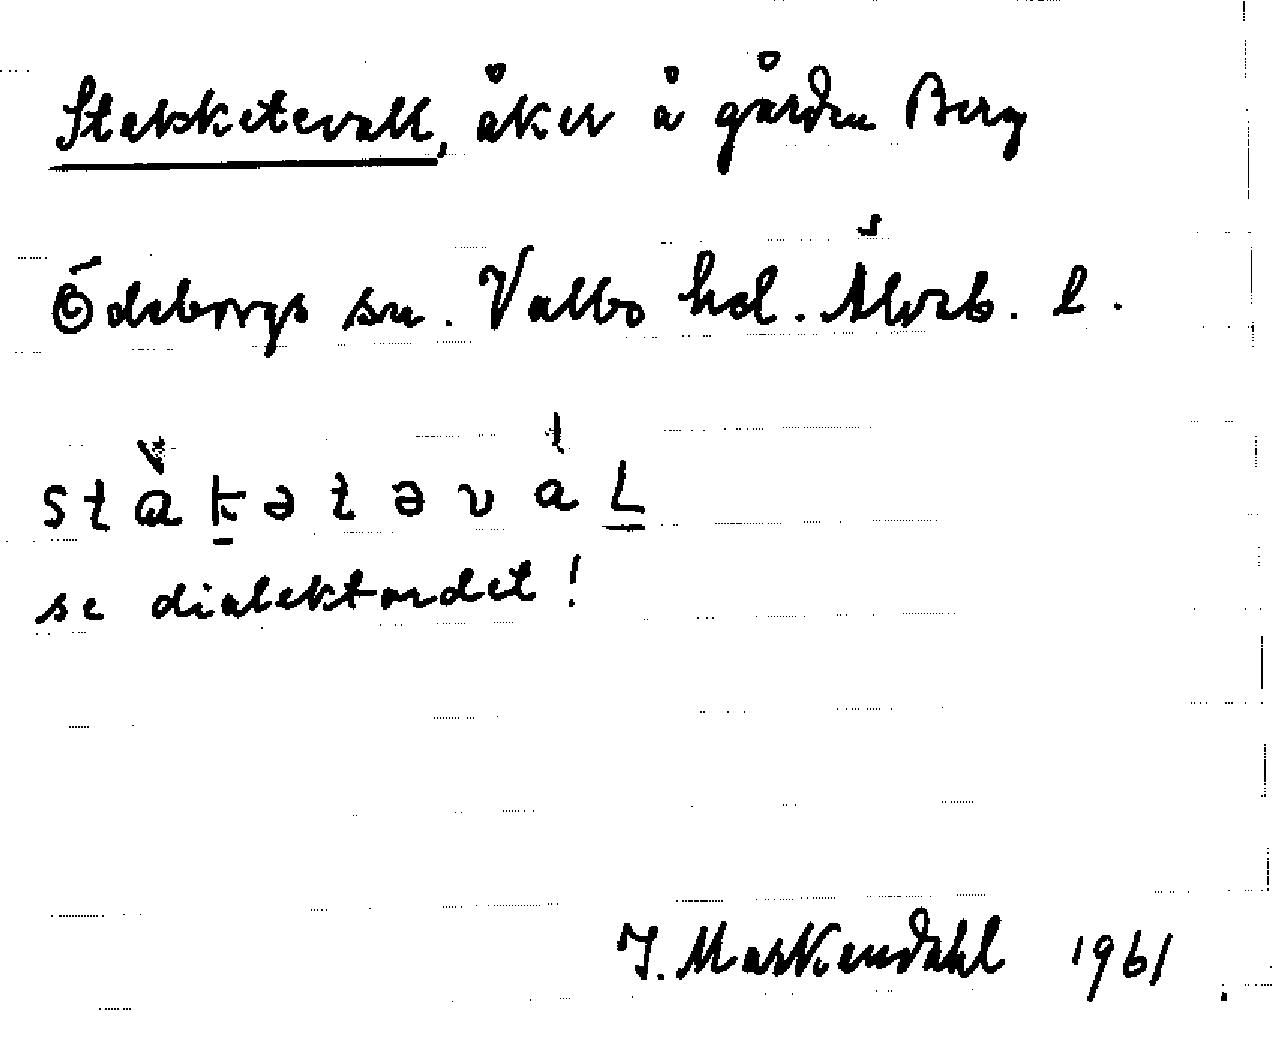 Stakketevall, åker å gården Berg
Ödeborgs sn. Valbo hd. Älvsb. l.
stàkətəvàL
se dialektordet!
J. Markendahl 1961